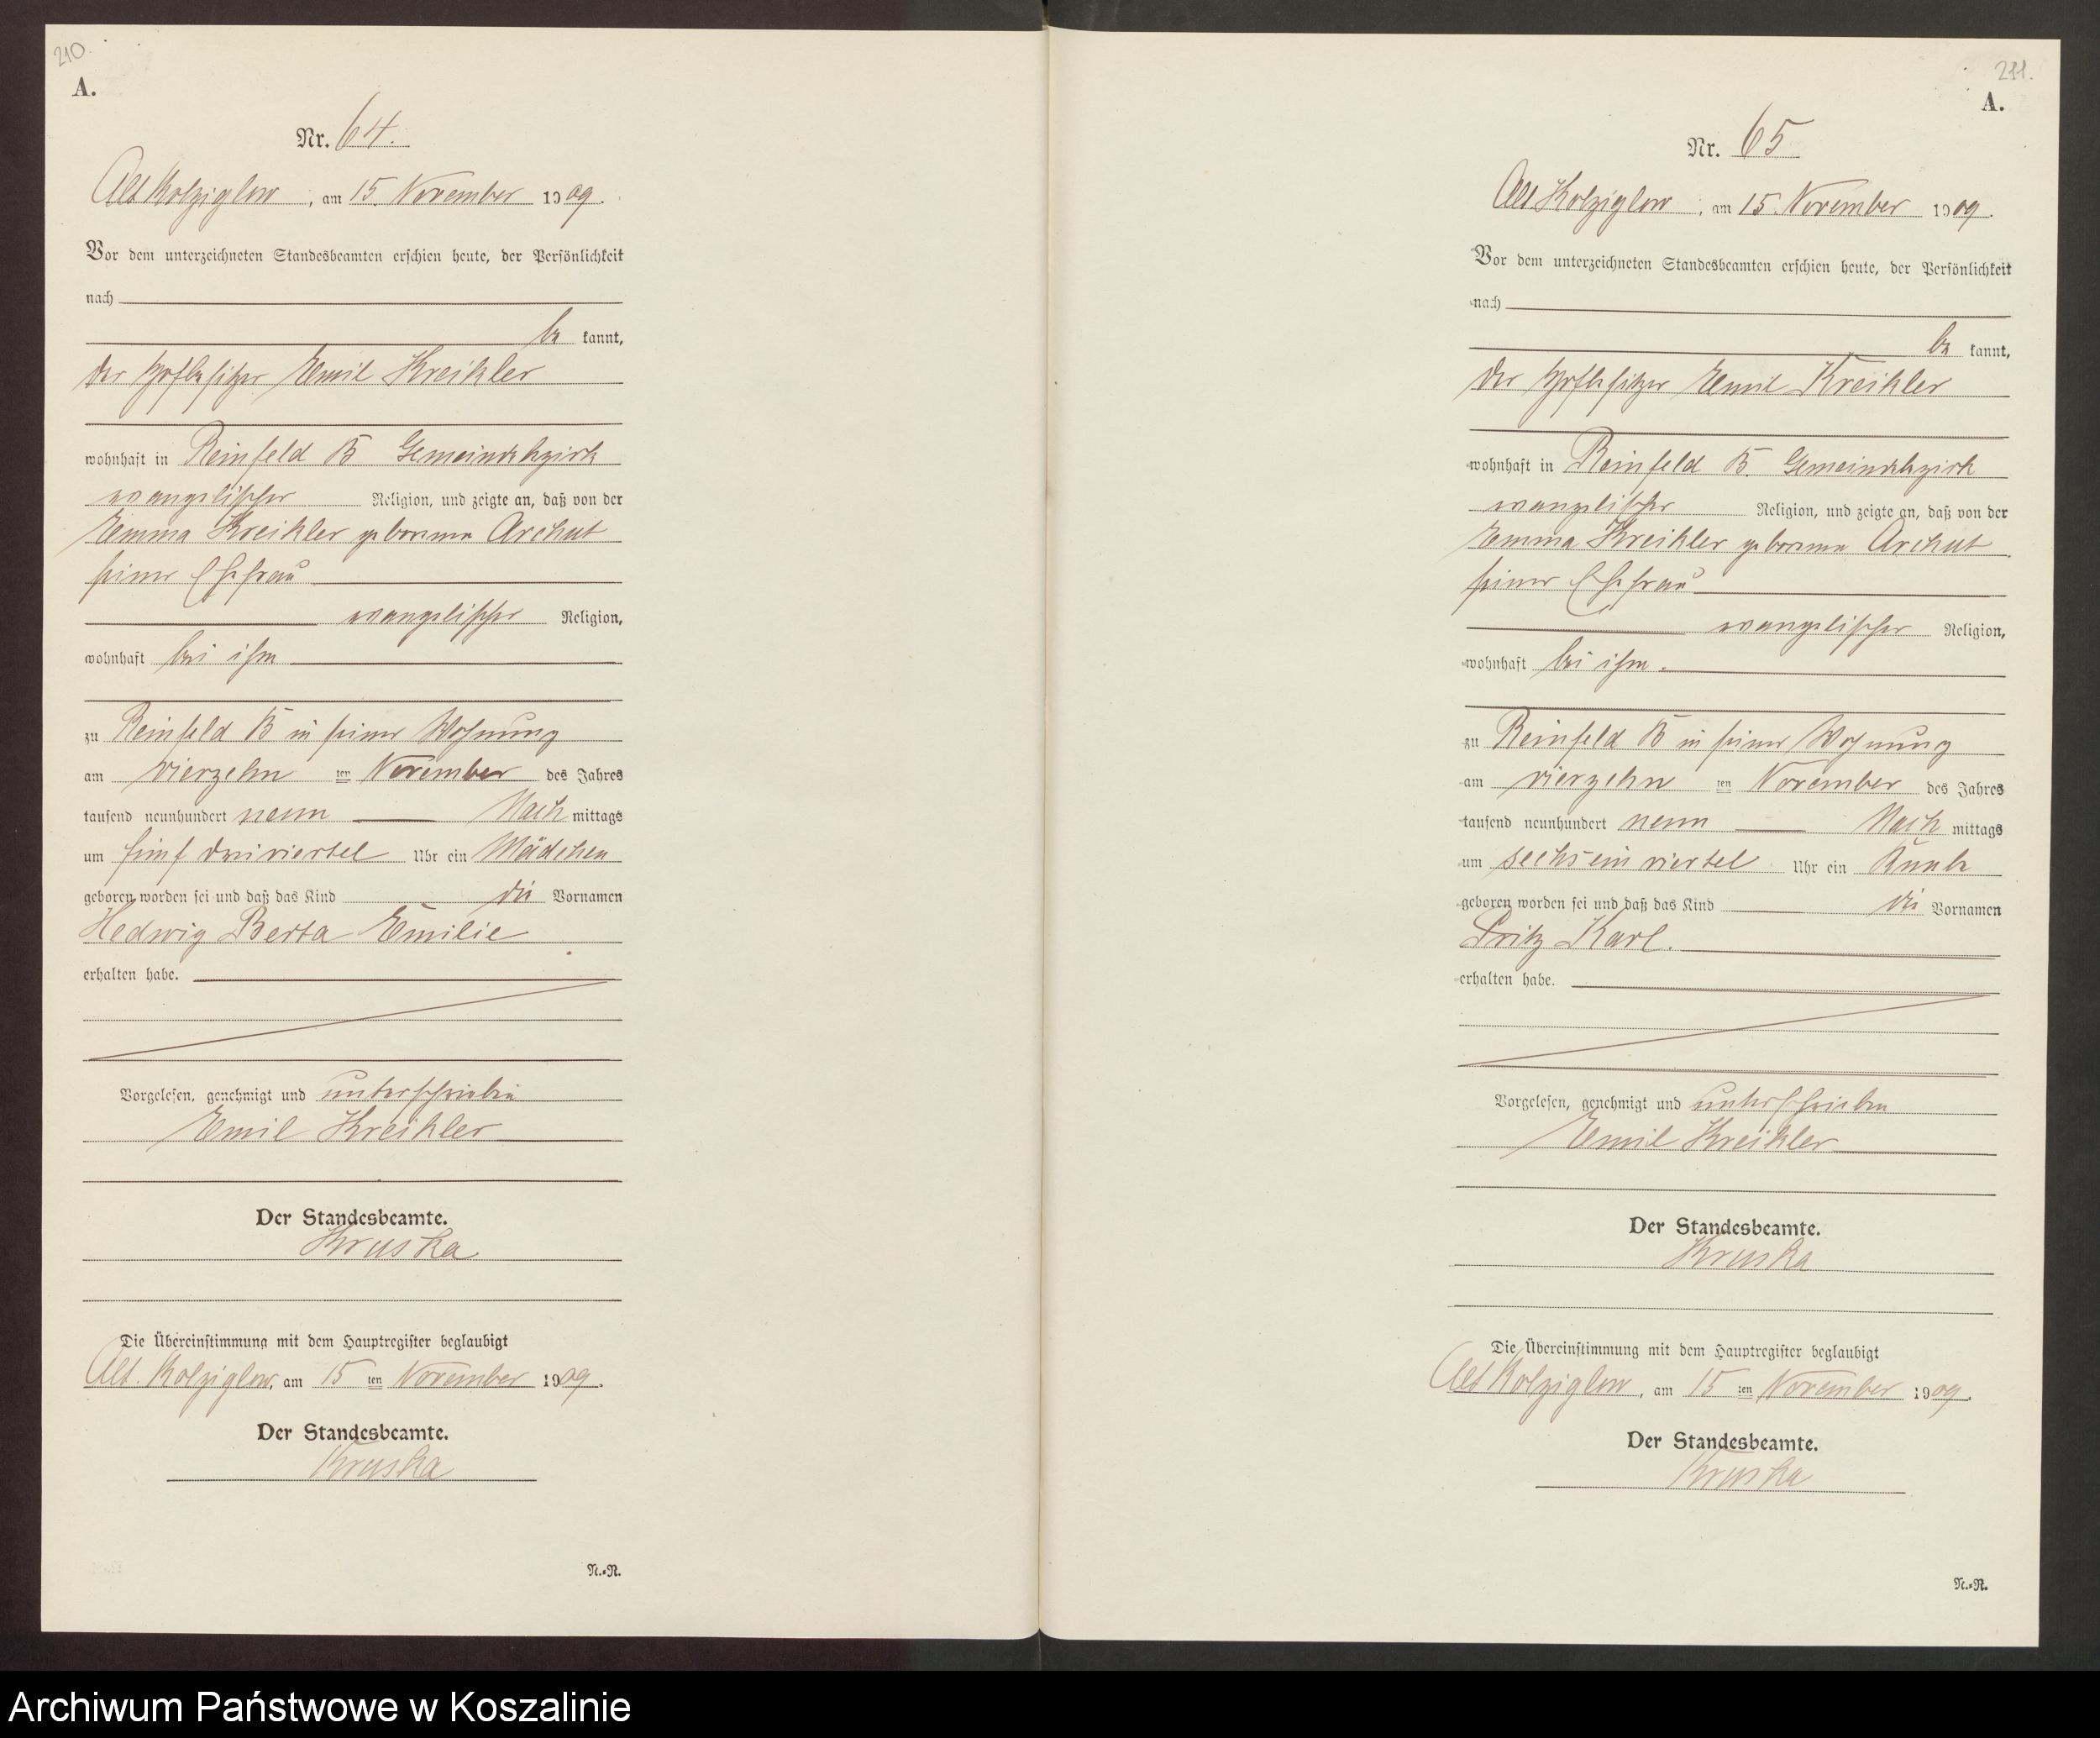 210.
A.
Nr. 64.
Alt Kolziglow, am 15. November 1909.
Vor dem unterzeichneten Standesbeamten erschien heute, der Persönlichkeit
nach
be kannt,
der Hofbesitzer Emil Kreikler
wohnhaft in Reinfeld B Gemeindebezirk
evangelischer Religion, und zeigte an, daß von der
Emma Kreikler geborenen Archut
seiner Ehefrau
evangelischer Religion,
wohnhaft bei ihm
zu Reinfeld B in seiner Wohnung
am vierzehn ten November des Jahres
tausend neunhundert neun Nach mittags
um fünf dreiviertel Uhr ein Mädchen
geboren worden sei und daß das Kind die Vornamen
Hedwig Berta Emilie
erhalten habe.
Vorgelesen, genehmigt und unterschrieben
Emil Kreikler
Der Standesbeamte.
Kruska
Die Übereinstimmung mit dem Hauptregister beglaubigt
Alt. Kolziglow, am 15 ten November 1909.
Der Standesbeamte.
Kruska
N.=R.
211.
A.
Nr. 65
Alt Kolziglow, am 15. November 1909.
Vor dem unterzeichneten Standesbeamten erschien heute, der Persönlichkeit
nach
be kannt,
der Hofbesitzer Emil Kreikler
wohnhaft in Reinfeld B. Gemeindebezirk
evangelischer Religion, und zeigte an, daß von der
Emma Kreikler geborenen Archut
seiner Ehefrau
evangelischer Religion,
wohnhaft bei ihm.
zu Reinfeld B in seiner Wohnung
am vierzehn ten November des Jahres
tausend neunhundert neun Nach mittags
um sechs ein viertel Uhr ein Knabe
geboren worden sei und daß das Kind die Vornamen
Fritz Karl.
erhalten habe.
Vorgelesen, genehmigt und unterschrieben
Emil Kreikler
Der Standesbeamte.
Kruska
Die Übereinstimmung mit dem Hauptregister beglaubigt
Alt Kolziglow, am 15 ten November 1909.
Der Standesbeamte.
Kruska
N.=R.
Archiwum Państwowe w Koszalinie